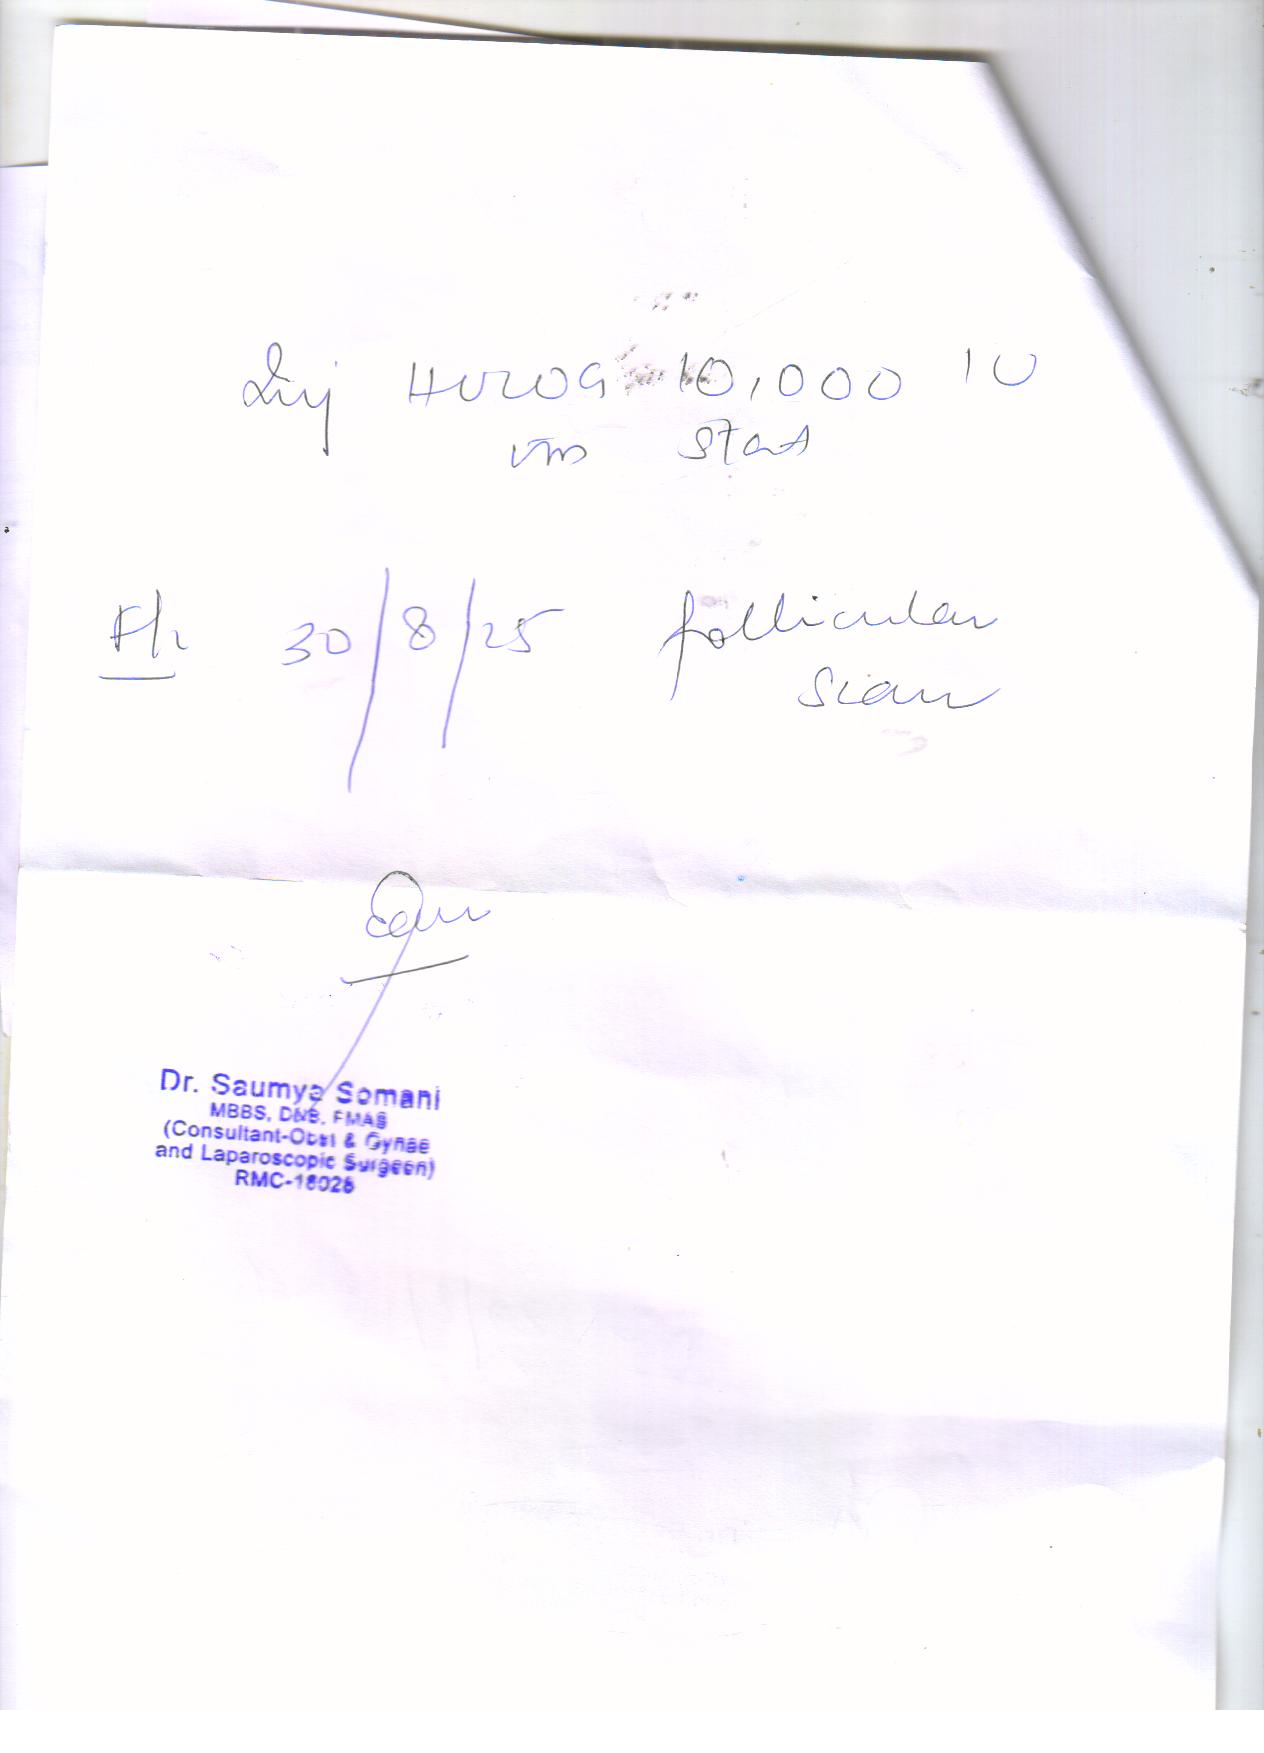 Inj HUCOG 10,000 IU
im stat
F/u 30/8/25 follicular
scan
Dr. Saumya Somani
MBBS, DNB, FMAS
(Consultant-Obst & Gynae
and Laparoscopic Surgeon)
RMC-18026